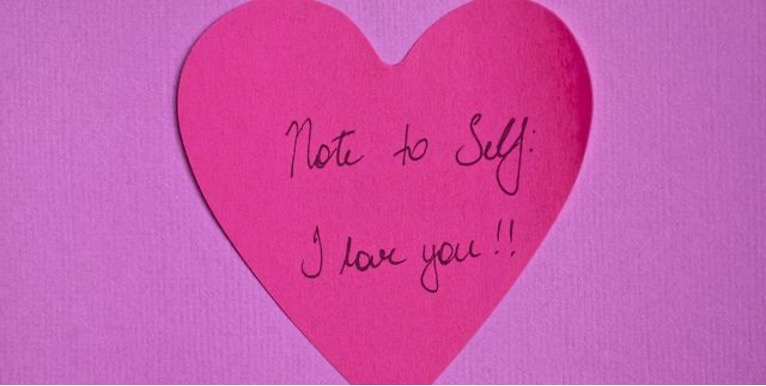 Note to Self:
I love you!!